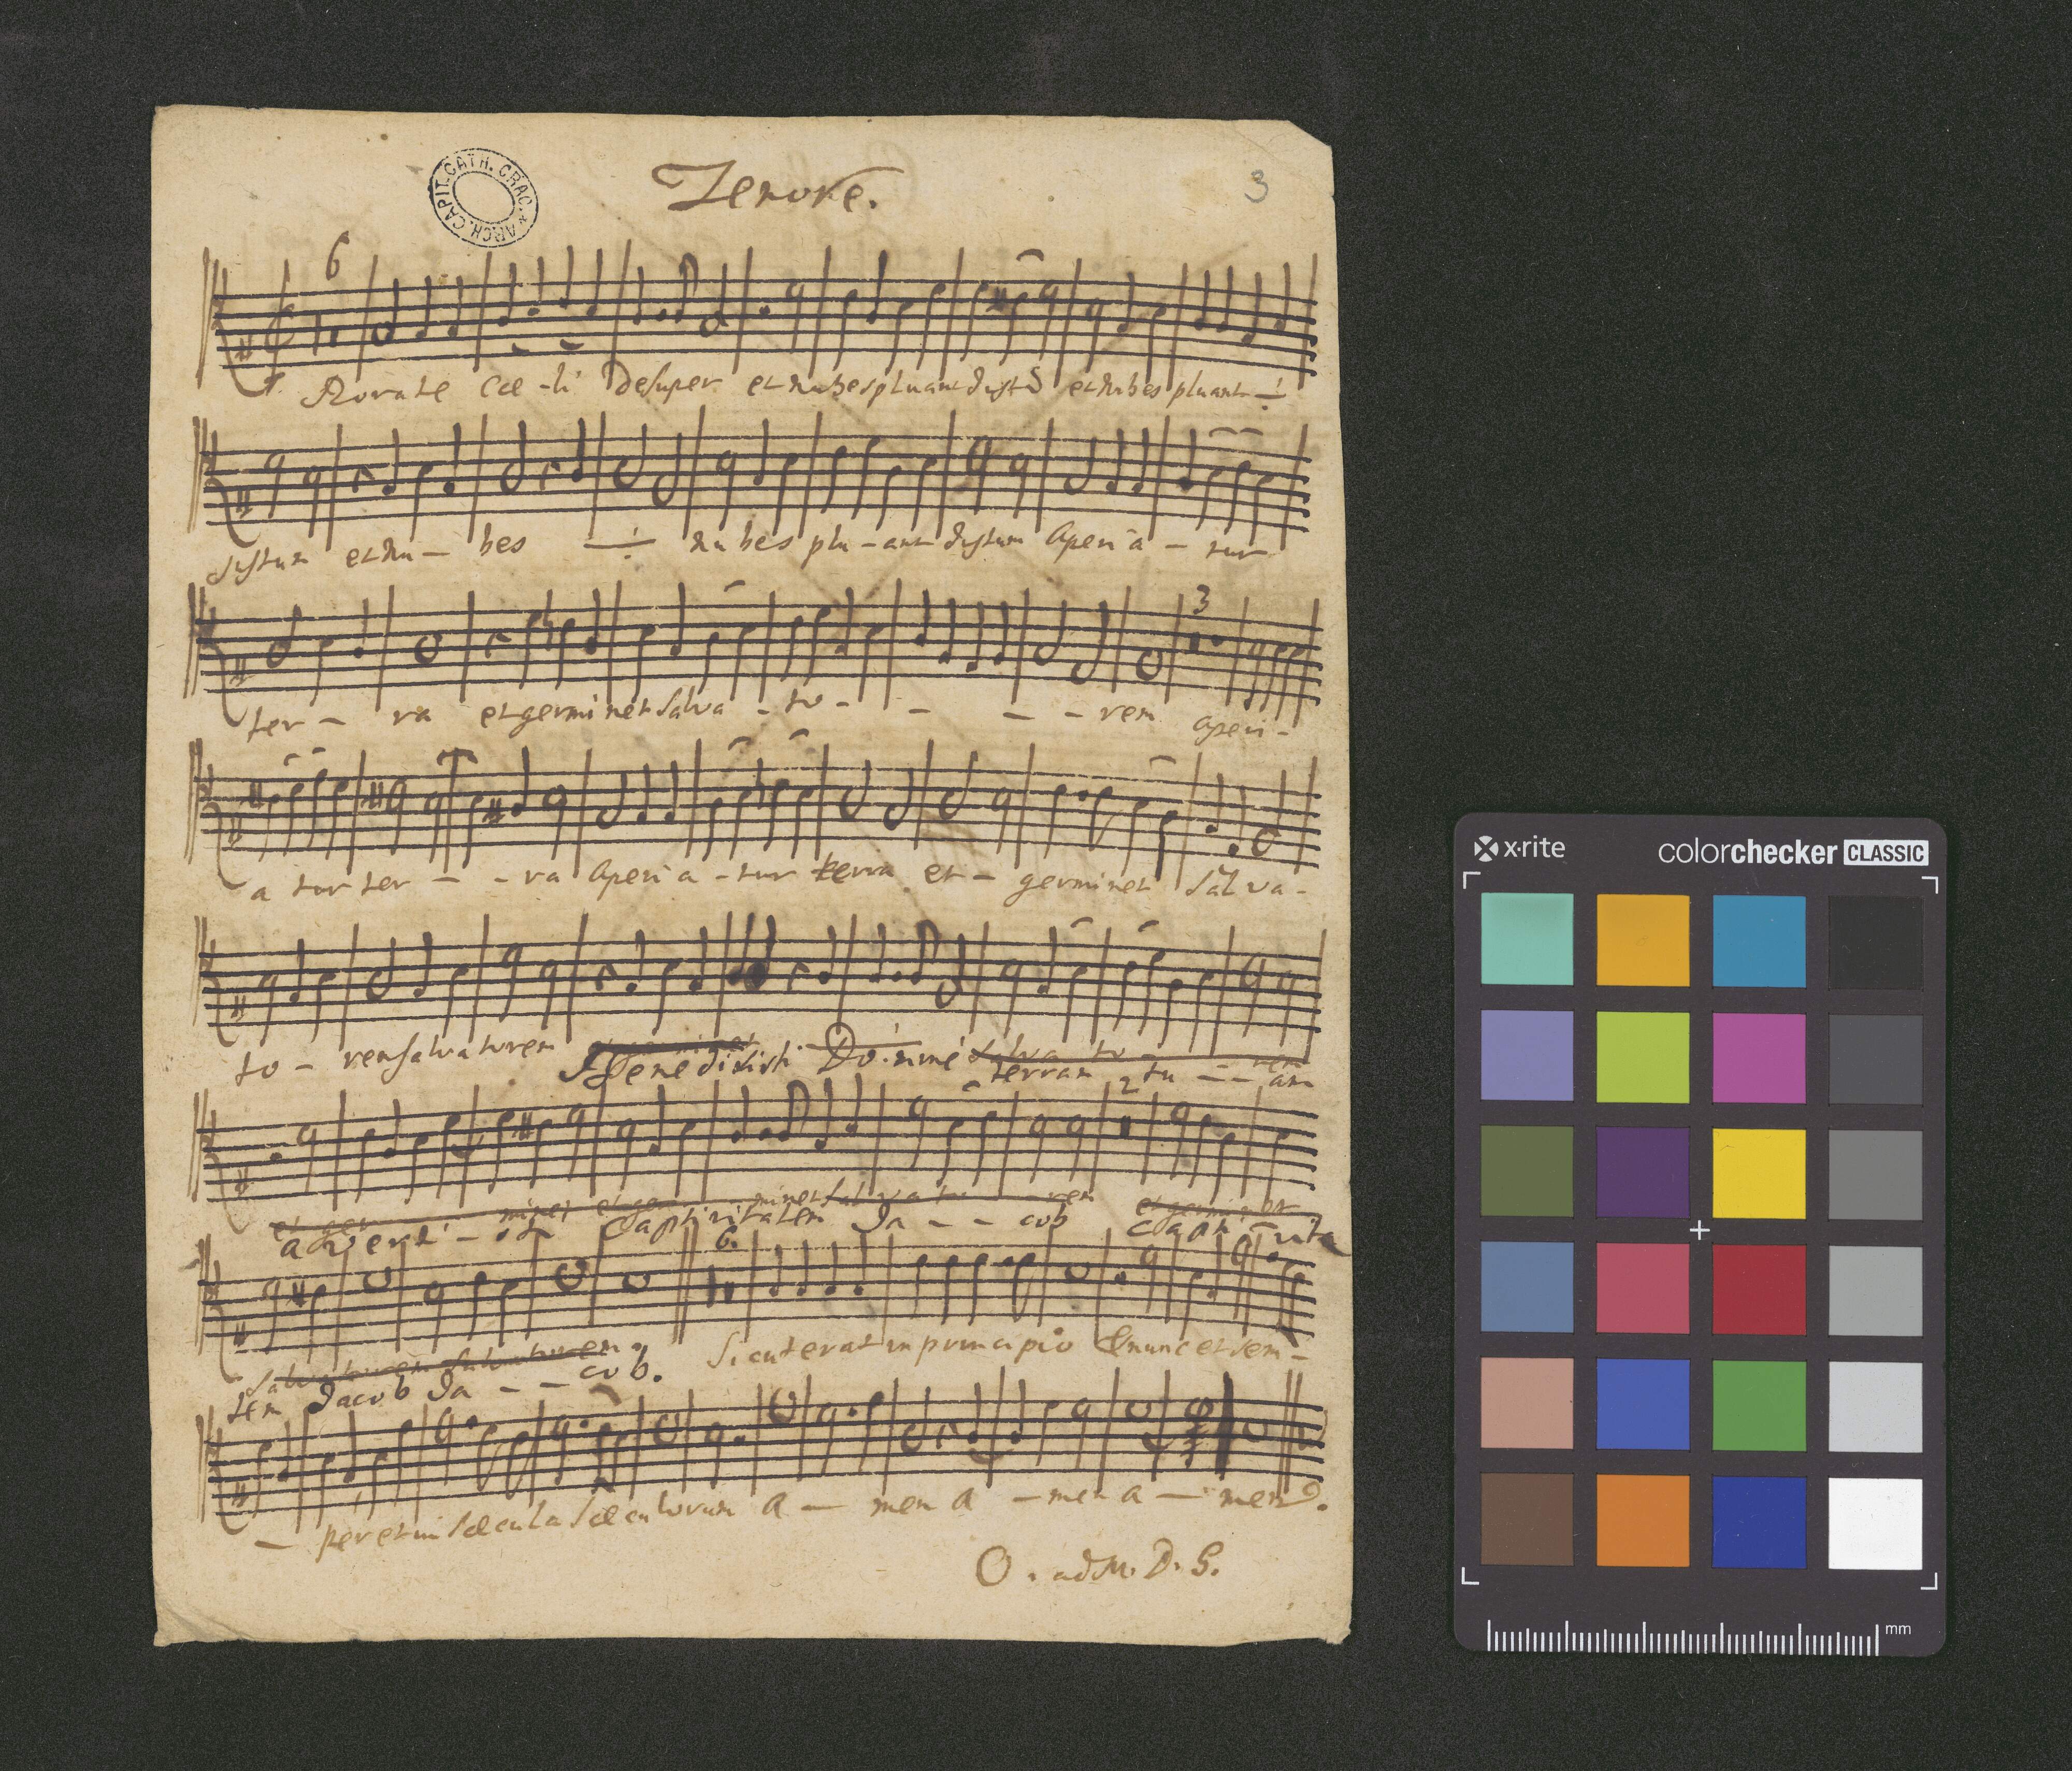 ARCH. CAPIT. CATH. CRAC.
Tenore.
3
6
Rorate Cae - li Desuper et nubes pluant Justū et nubes pluant
Justum et nu - bes nubes plu - ant Justum Aperia - tur
3
ter - ra et germinet salva - to - - - - rem aperi -
a tur ter - - ra Aperi a - tur terra et - germinet Salva -
to - rem salvatorem Benedixisti Domine terram tu - - am
2
averti - sti Captivitatem Ja - - cob Captivita
6.
tem Jacob Ja - - cob. Sicut erat in principio & nunc et sem -
- per et in saecula saeculorum A - men A - men a - men.
O. ad M. D. G.
x-rite
colorchecker CLASSIC
mm